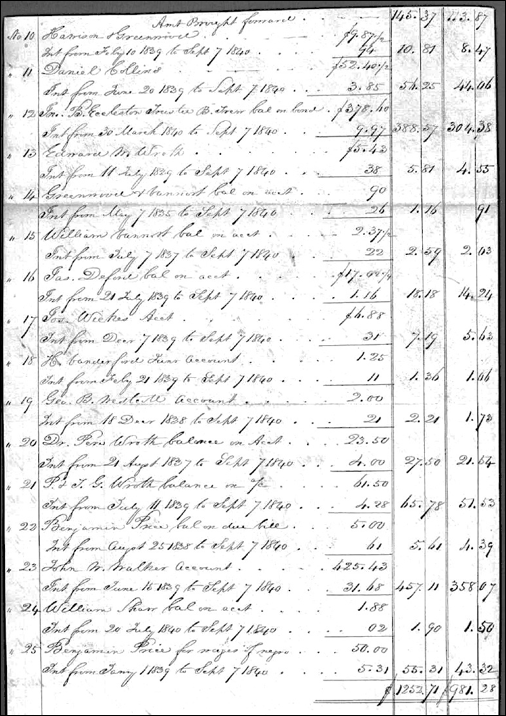 Amt Brought forward . 145.37 113.87
No 10 Harrison Greenwood . . . $9.87½
Int from July 10 1839 to Sept 7 1840 . . . 94 10.81 8.47
" 11 Daniel Collins . . . $52.40½
Int from June 20 1839 to Sept 7 1840 . . . 3.85 56.25 44.06
" 12 Jno. B. Eccleston Trustee B. bal on bond . $378.40
Int from 30 March 1840 to Sept 7 1840 . . . 9.97 388.37 304.38
" 13 Edward Wroth . . . $5.43
Int from 11 July 1839 to Sept 7 1840 . . . 38 5.81 4.55
" 14 Greenwood & Vannort bal on acct . 90
Int from May 7 1835 to Sept 7 1840 . . . 26 1.16 91
" 15 William Vannort bal on acct . . 2.37½
Int from July 7 1837 to Sept 7 1840 . . . 22 2.59 2.03
" 16 Jas. bal on acct . . .
Int from 21 July 1839 to Sept 7 1840 . . . 1.16 18.18 14.24
" 17 Jos. Wickes Acct . . . $6.88
Int from Decr 7 1839 to Sept 7 1840 . . . 31 7.19 5.63
" 18 H. Vanderford Account . . . 1.25
Int from July 21 1839 to Sept 7 1840 . . . 11 1.36 1.06
" 19 Geo. B. Account . . . 2.00
Int from 18 Decr 1838 to Sept 7 1840 . . . 21 2.21 1.73
" 20 Dr. Pere Wroth balance on Acct . . 23.50
Int from 21 Augst 1837 to Sept 7 1840 . . 4.00 27.50 21.54
" 21 P. & T. G. Wroth balance on a/c . . 61.50
Int from July 11 1839 to Sept 7 1840 . . . 4.28 65.78 51.53
" 22 Benjamin Price bal on due bill . . 5.00
Int from Augst 25 1838 to Sept 7 1840 . . . 61 5.61 4.39
" 23 John W. Walker Account . . . 425.43
Int from June 15 1839 to Sept 7 1840 . . . 31.68 457.11 358.07
" 24 William Shaw bal on acct . . . 1.88
Int from 20 July 1840 to Sept 7 1840 . . . 02 1.90 1.50
" 25 Benjamin Price for wages of negro . . 50.00
Int from Jany 1 1839 to Sept 7 1840 . . . 5.31 55.31 43.32
$1252.71 $981.28